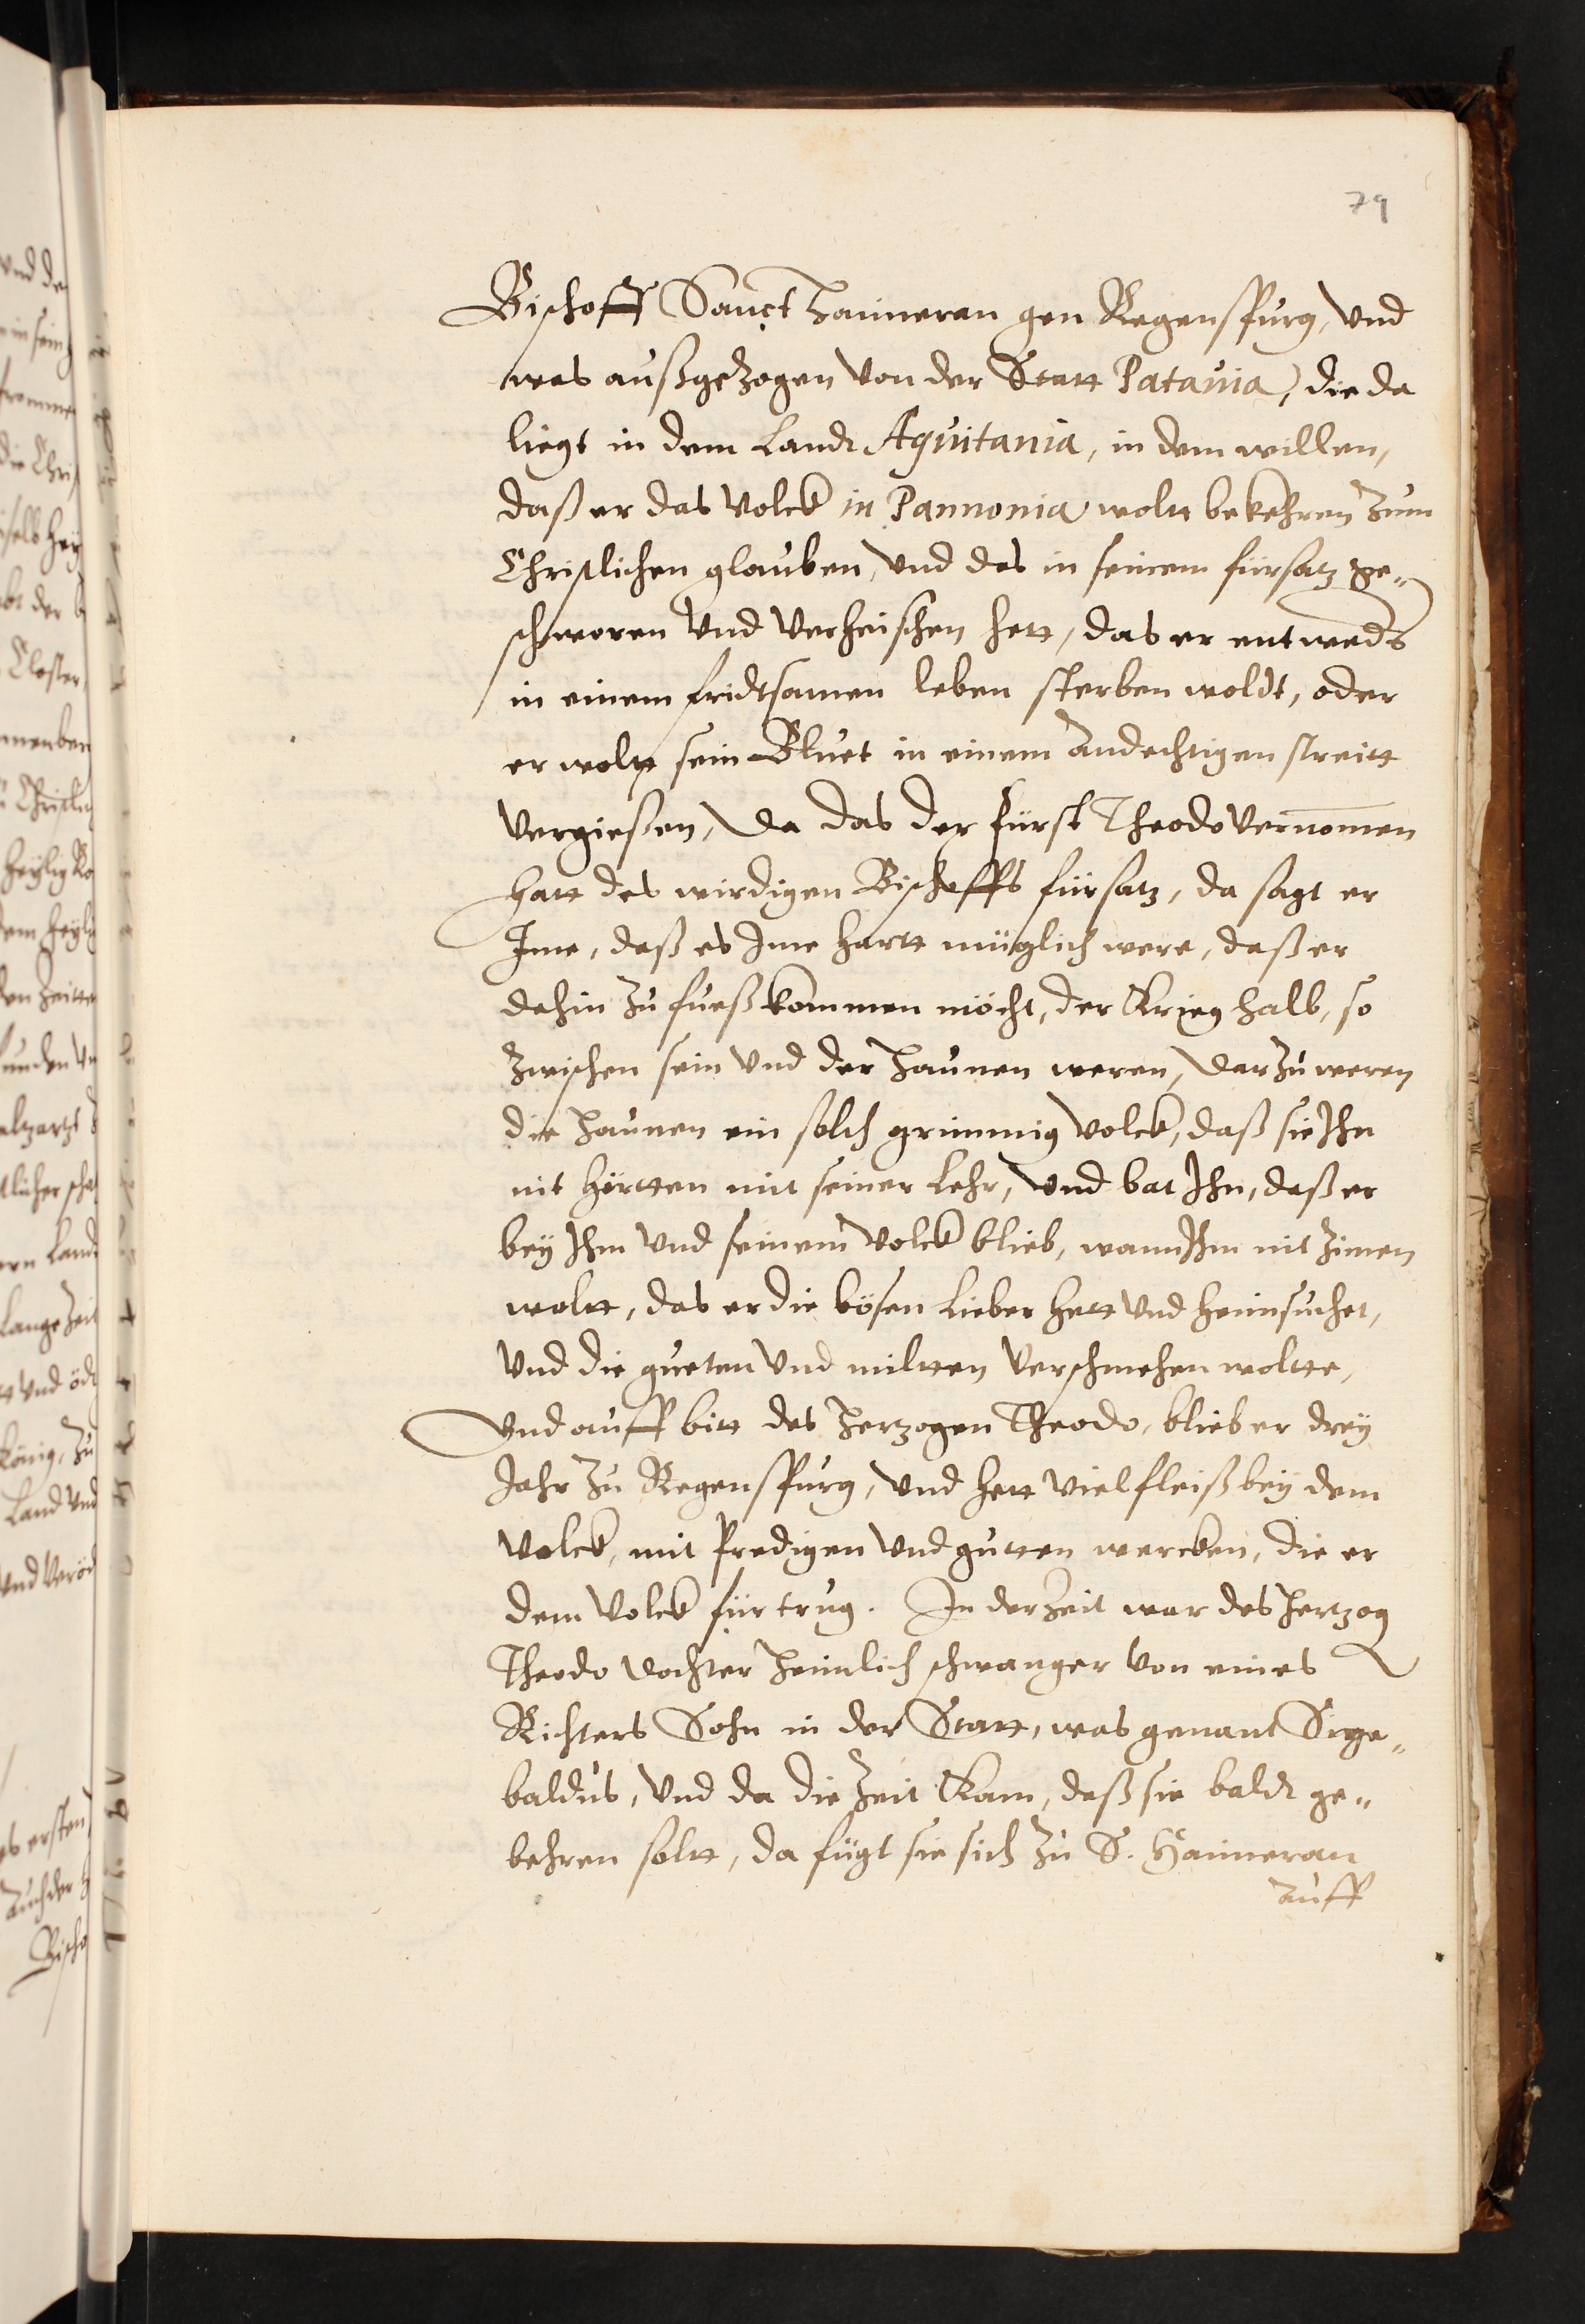 79
Bischoff Sanct Haimeran gen Regenspurg, vnd
was außgezogen von der Statt Patauia, die da
liegt in dem Landt Aquitania, in dem willen,
daß er das Volck in Pannonia wolt bekehren zum
Christlichen glauben, vnd das in seinem fürsatz ge„
schworen vnd verheischen hett, das er entweds
in einem fridtsamen leben sterben woldt, oder
er wolt sein Bluet in einem andechtigen streitt
vergießen, Da das der fürst Theodo vernommen
hatt des wirdigen Bischoffs fürsatz, da sagt er
Ime, daß es Ime hartt müglich were, daß er
dahin zu fueß kommen möcht, der Krieg halb, so
zwischen sein vnd der Haunen weren, darzu weren
die Haunen ein solch grimmig volck, daß sie Ihn
nit hörtten mit seiner Lehr, vnd bat Ihn, daß er
bey Ihm vnd seinem volck blieb, wann Ihm nit zimen
woltt, das er die bösen Lieber hett vnd heimsuchet,
vnd die gueten vnd miltten verschmehen woltte,
Vnd auff bitt des Hertzogen Theodo, blieb er drey
Jahr zu Regenspurg, vnd hett viel fleiß bey dem
Volck, mit Predigen vnd gutten wercken, die er
dem Volck fürtrug. In der Zeit war des Hertzog
Theodo dochter heimlich schwanger von eines
Richters Sohn in der Statt, was genant Sige„
baldus, vnd da die Zeit Kam, daß sie baldt ge„
behren soltt, da fügt sie sich zu S. Haimeran
auff